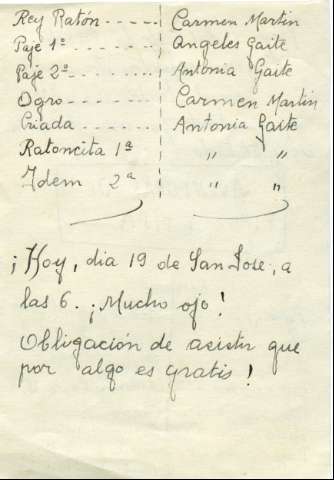 Rey Ratón - - - - - Carmen Martin
Paje 1º - - - - - - - Angeles Gaite
Paje 2º - - - - - - - Antonia Gaite
Ogro - - - - - - - Carmen Martin
Criada - - - - - - - Antonia Gaite
Ratoncita 1ª " "
Idem 2ª " "
¡Hoy, dia 19 de San Jose, a
las 6. ¡Mucho ojo!
Obligación de asistir que
por algo es gratis!